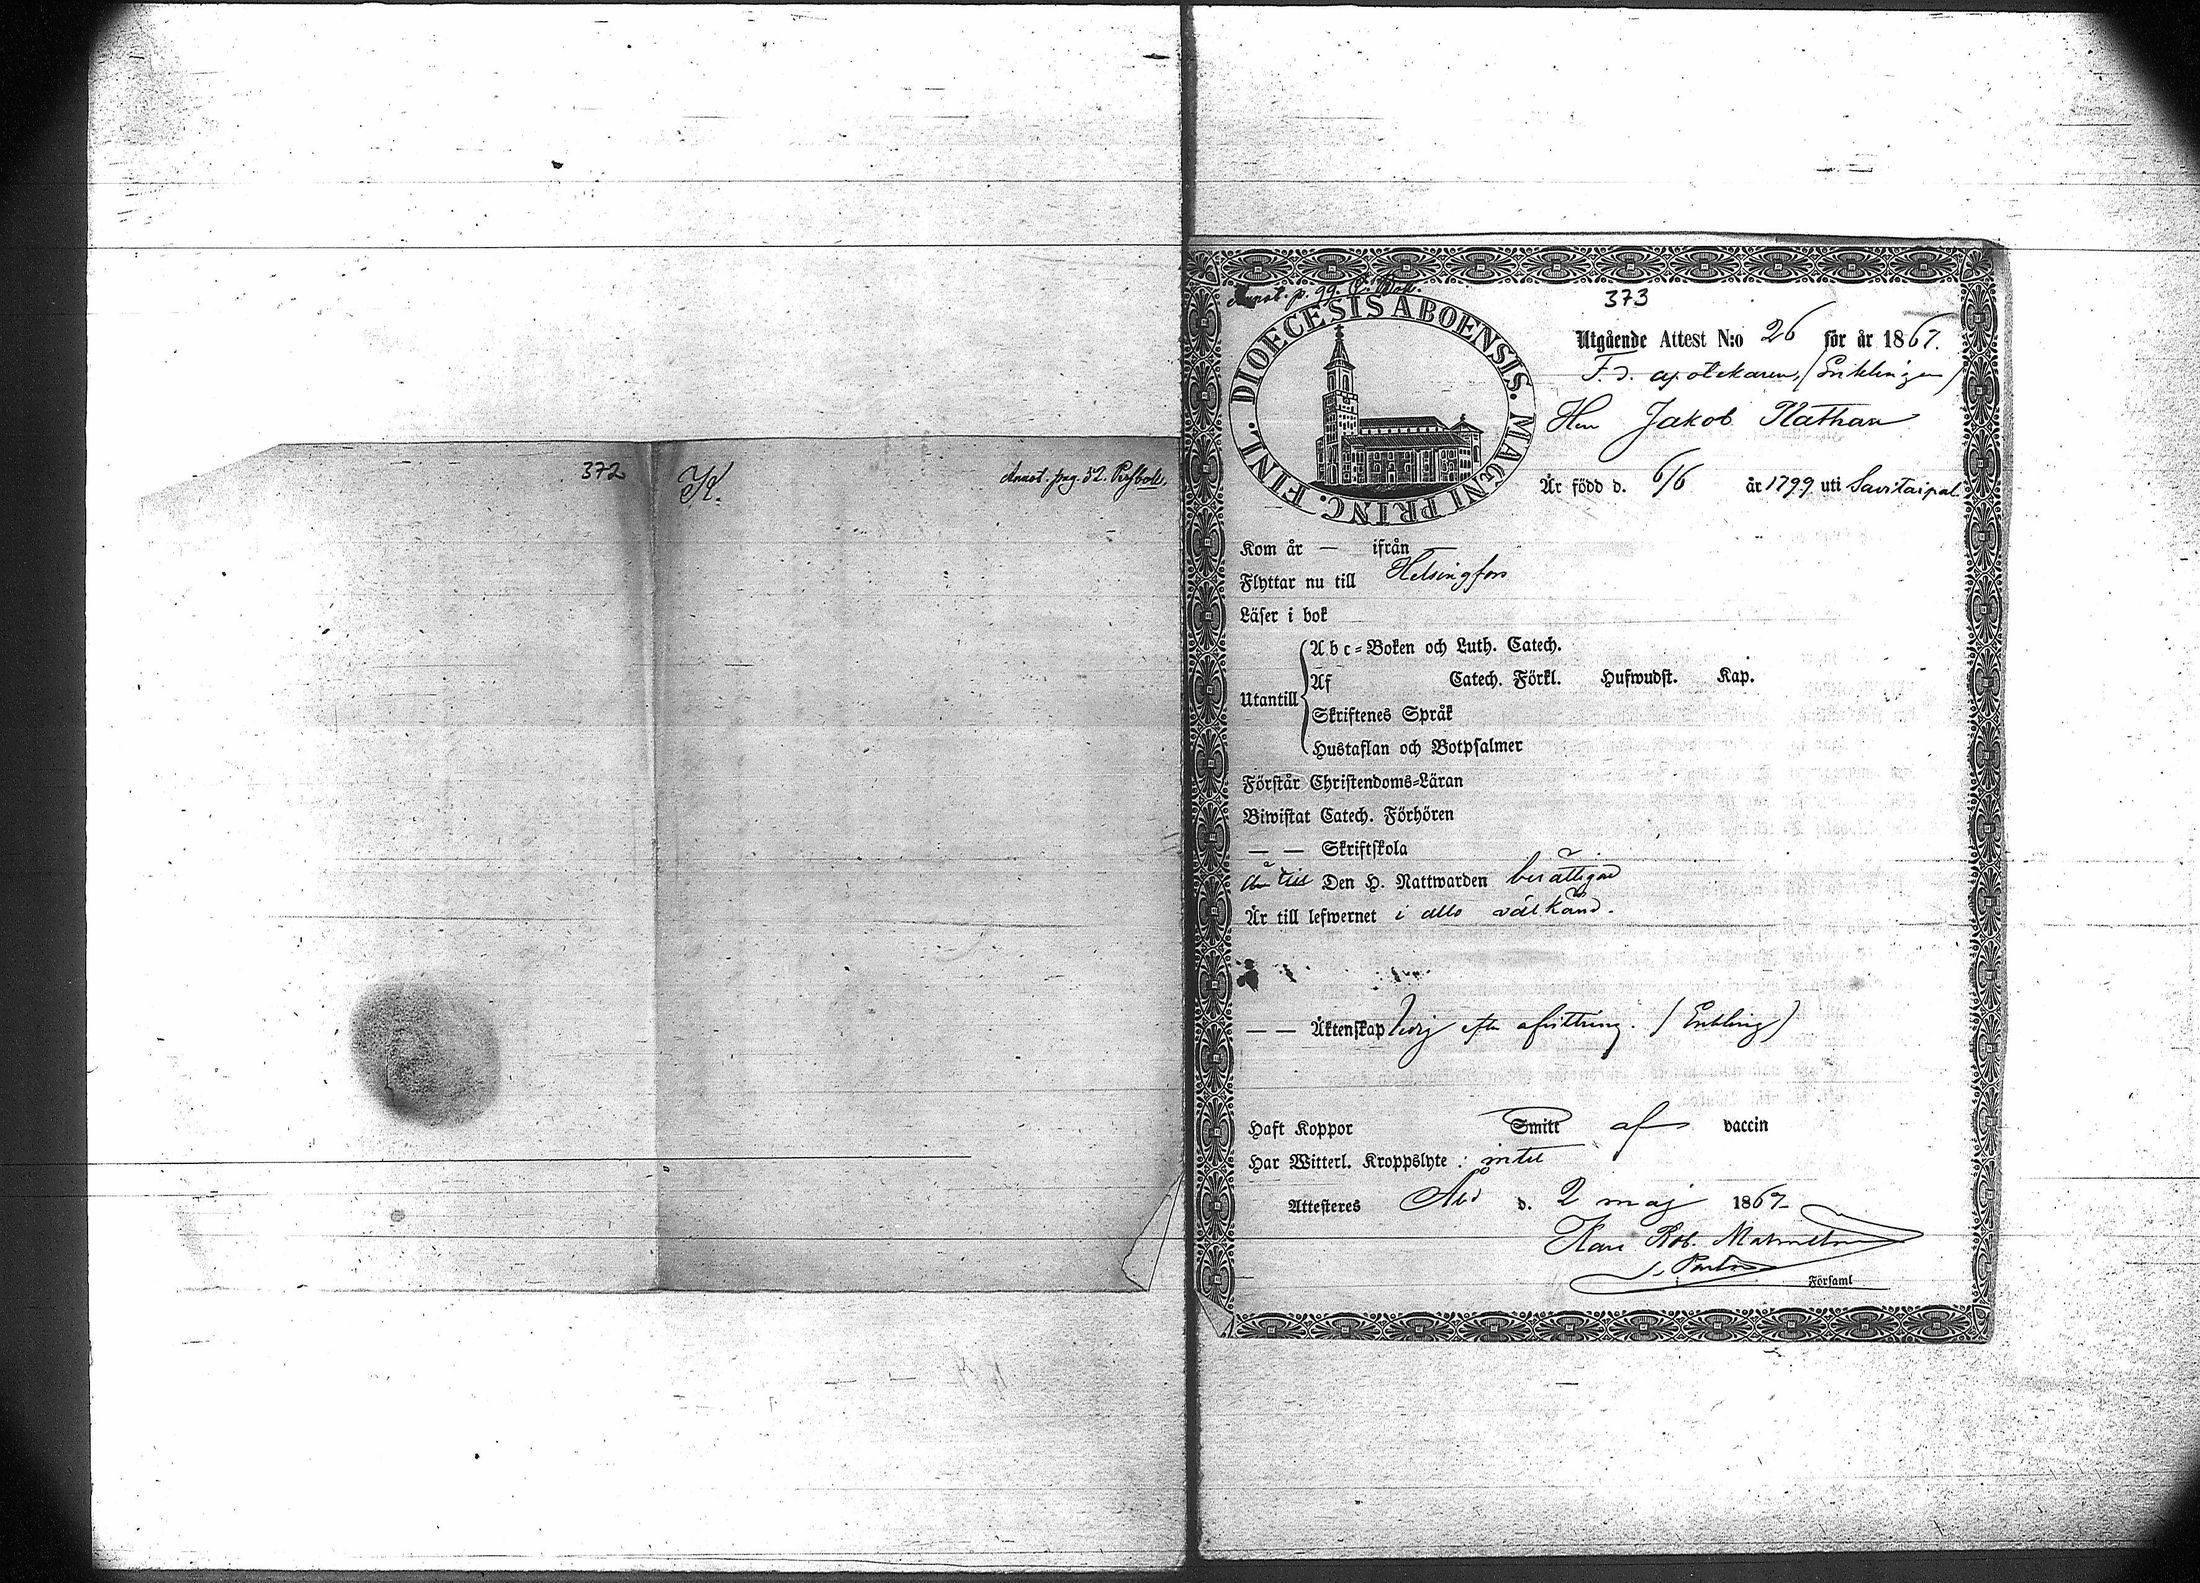 372
K.
Annot. pag. 82.
373
Annot. p. 99.
DIOECESIS ABOENSIS. MAGNI PRINC. FINL.
Utgående Attest N:o 26 för år 1867.
F. d. apotekaren, (Enklingen)
Herr Jakob Nathan
Är född d. 6/6 år 1799 uti Savitaipal.
Kom år — ifrån —
Flyttar nu till Helsingfors
Läser i bok
Utantill
Abc-Boken och Luth. Catech.
Af Catech. Förkl. Hufwudst. Kap.
Skriftenes Språk
Hustaflan och Botpsalmer
Förstår Christendoms-Läran
Biwistat Catech. Förhören
— — Skriftskola
Är till Den H. Nattwarden berättigad
Är till lefwernet i allo välkänd.
— — Äktenskap ledig efter afvittring. (Enkling)
Haft Koppor Smitt af vaccin
Har Witterl. Kroppslyte: intet
Attesteres Åbo d. 2 maj 1867
Karl Rob. Malmström
Församl